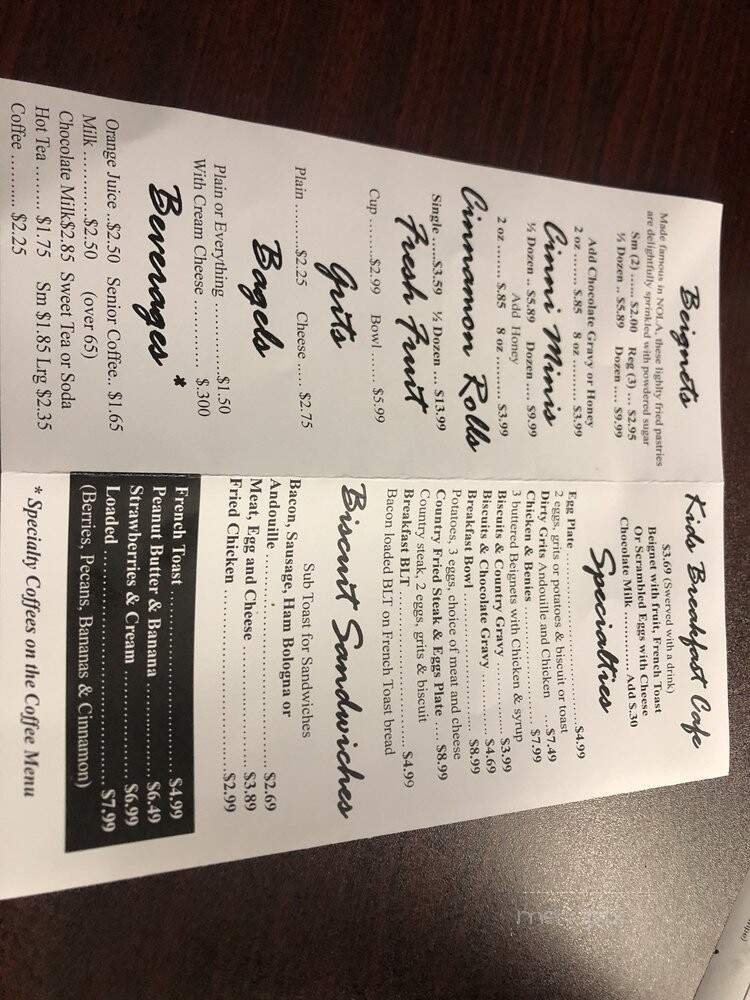 Beignets
Made famous in NOLA, these lighlty fried pastries
are delightfully sprinkled with powdered sugar
Sm (2) ...... $2.00 Reg (3) ... $2.95
½ Dozen .. $5.89 Dozen .... $9.99
Add Chocolate Gravy or Honey
2 oz ........ $.85 8 oz .......... $3.99
Cinni Minis
½ Dozen .. $5.89 Dozen .... $9.99
Add Honey
2 oz ........ $.85 8 oz .......... $3.99
Cinnamon Rolls
Single ......$3.59 ½ Dozen ... $13.99
Fresh Fruit
Cup ........$2.99 Bowl ..... $5.99
Grits
Plain ..........$2.25 Cheese ..... $2.75
Bagels
Plain or Everything ..............$1.50
With Cream Cheese ........... $.300
Beverages *
Orange Juice ..$2.50 Senior Coffee.. $1.65
Milk ............$2.50 (over 65)
Chocolate Milk$2.85 Sweet Tea or Soda
Hot Tea ......... $1.75 Sm $1.85 Lrg $2.35
Coffee .......... $2.25
Kids Breakfast Cafe
$3.69 (Swerved with a drink)
Beignet with fruit, French Toast
Or Scrambled Eggs with Cheese
Chocolate Milk ............. Add $.30
Specialties
Egg Plate ..............................$4.99
2 eggs, grits or potatoes & biscuit or toast
Dirty Grits Andouille and Chicken ...$7.49
Chicken & Benies ......................... $7.99
3 buttered Beignets with Chicken & syrup
Biscuits & Country Gravy ............. $3.99
Biscuits & Chocolate Gravy .......... $4.69
Breakfast Bowl ............................. $8.99
Potatoes, 3 eggs, choice of meat and cheese
Country Fried Steak & Eggs Plate .... $8.99
Country steak, 2 eggs, grits & biscuit
Breakfast BLT ............................. $4.99
Bacon loaded BLT on French Toast bread
Biscuit Sandwiches
Sub Toast for Sandwiches
Bacon, Sausage, Ham Bologna or
Andouille ............................ $2.69
Meat, Egg and Cheese .................. $3.89
Fried Chicken ............................. $2.99
French Toast ........................... $4.99
Peanut Butter & Banana .......... $6.49
Strawberries & Cream ............ $6.99
Loaded ................................. $7.99
(Berries, Pecans, Bananas & Cinnamon)
* Specialty Coffees on the Coffee Menu